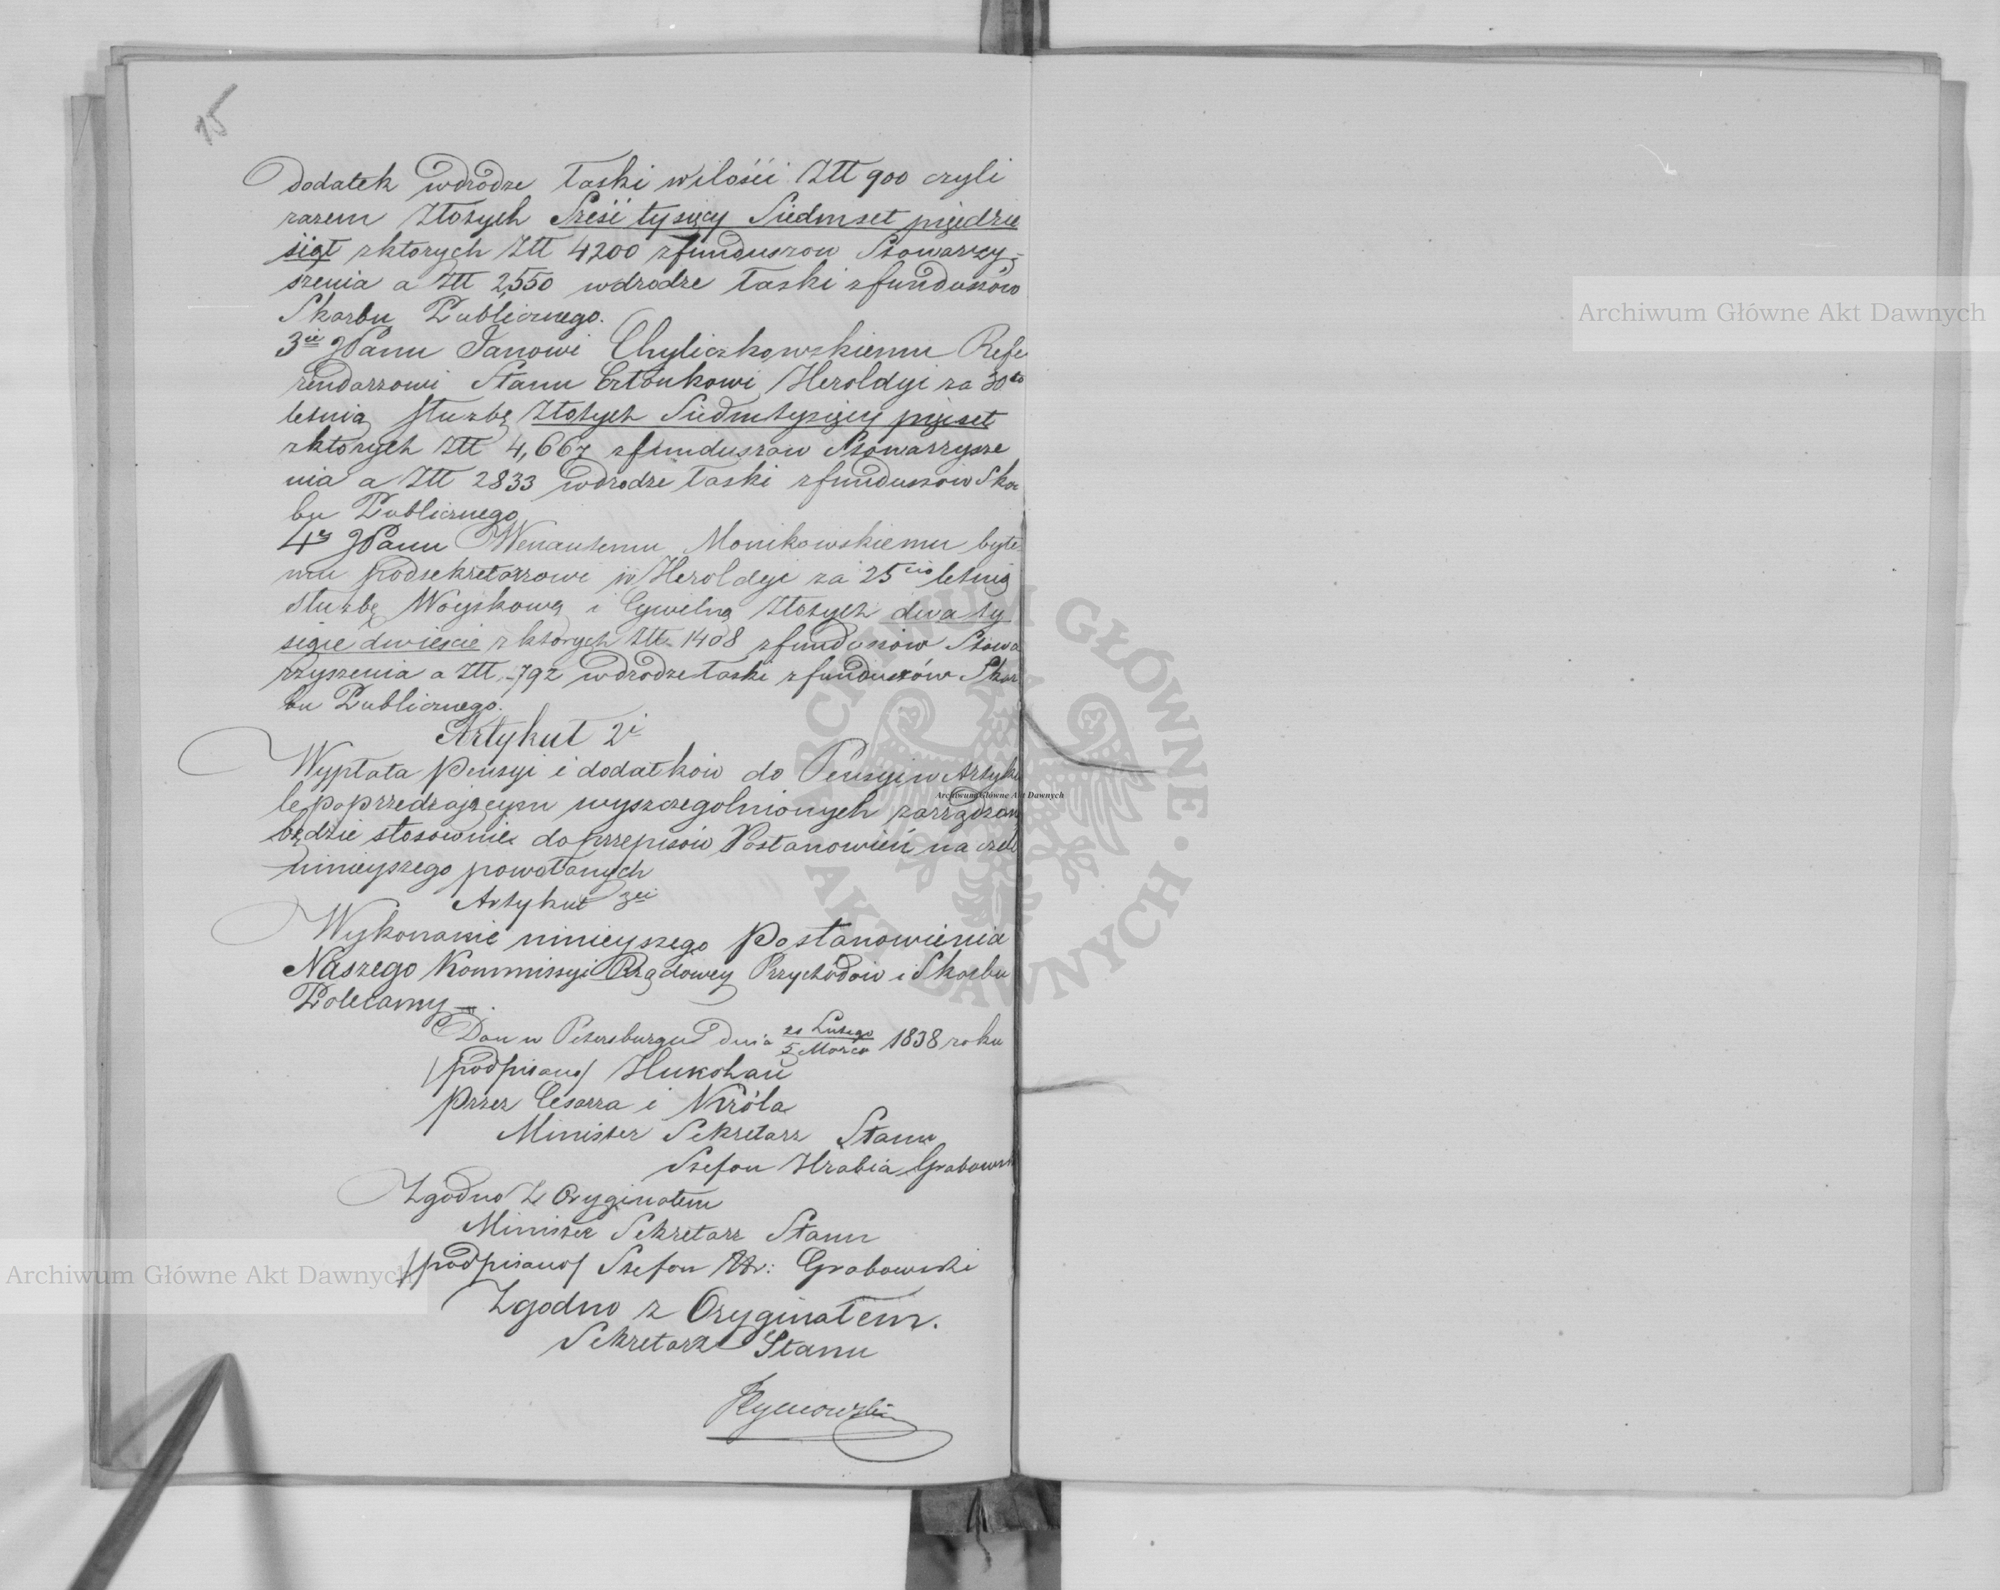 15
Dodatek wdrodze łaski wilości Złł 900 czyli
razem złotych Sześć tysięcy Siedmset pięćdzie
siąt zktorych Złł 4200 zfunduszow Stowarzy-
szenia a Złł 2550 wdrodze łaski zfunduszów
Skarbu Publicznego.
3cie JPanu Janowi Chyliczkowskiemu Refe
rendarzowi Stanu Członkowi Heroldyi za 30to
letnią służbę złotych Siedmtysięcy pięset
zktorych Złł 4,667 zfunduszow Stowarzysze
nia a Złł 2833 wdrodze łaski zfunduszow Skar
bu Publicznego
4e JPanu Wenantemu Monikowskiemu byłe
mu podsekretarzowi w Heroldyi za 25cio letnią
służbę Woyskową i Cywilną złotych dwa ty
siące dwieście zktorych Złł 1408 zfunduszow Stowa
rzyszenia a Złł. 792 wdrodze łaski zfunduszów Skar
bu Publicznego.
Artykuł 2i
Wypłata pensyi i dodatków do Pensyi w Artyku
le poprzedzającym wyszczególnionych zarządzoną
będzie stosownie do przepisów Postanowień na czele
ninieyszego powołanych
Artykuł 3ci
Wykonanie ninieyszego postanowienia
Naszego Kommissyi Rządowey Przychodów i Skarbu
Polecamy.
Dan w Petersburgu dnia 21 Lutego / 5 Marca 1838 roku
/podpisano/
przez Cesarza i Króla
Minister Sekretarz Stanu
Stefan Hrabia Grabowski
Zgodno z Oryginałem
Minister Sekretarz Stanu
/podpisano/ Stefan Hr: Grabowski
Zgodno z Oryginałem.
Sekretarz Stanu
Archiwum Główne Akt Dawnych
Archiwum Główne Akt Dawnych
Archiwum Główne Akt Dawnych
ARCHIWUM GŁÓWNE · AKT DAWNYCH ·